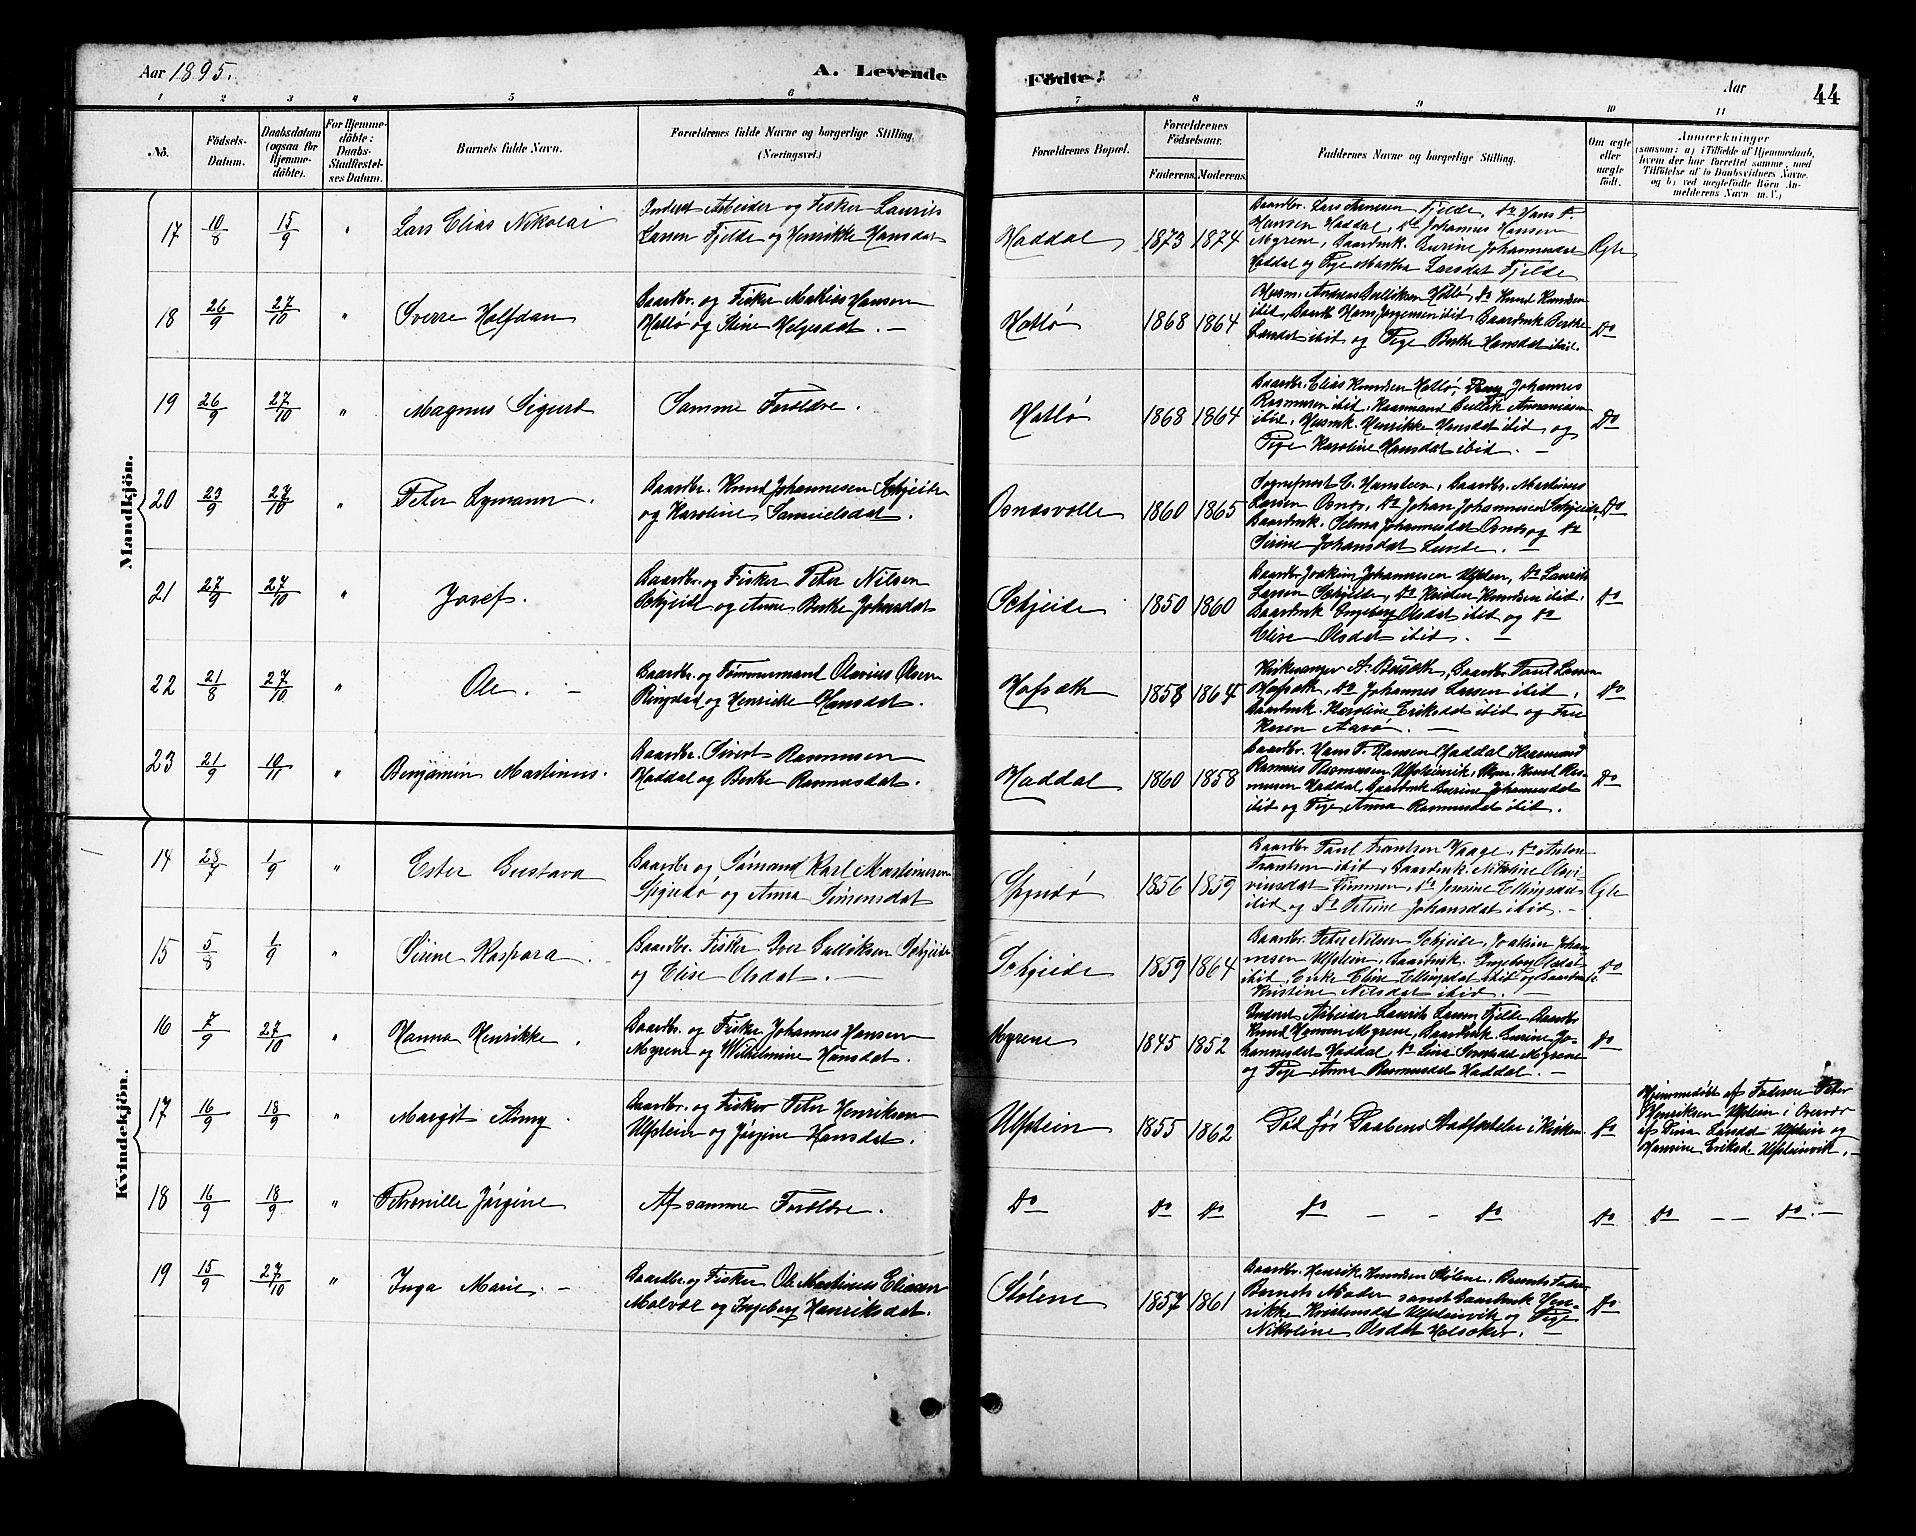 Aar 1895.
A. Levende
Födte.
Aar
44
1 2 3 4 5 6 7 8 9 10 11
No.
Födsels-
Datum.
Daabsdatum
(ogsaa for
Hjemme-
döbte).
For Hjemme-
döbte:
Daabs-
Stadfæstel-
ses Datum.
Barnets fulde Navn.
Forældrenes fulde Navne og borgerlige Stilling
(Næringsvei.)
Forældrenes Bopæl.
Forældrenes
Födselsaar.
Faderens. Moderens.
Faddernes Navne og borgerlige Stilling.
Om ægte
eller
uægte
födt.
Anmærkninger
(saasom: a) i Tilfælde af Hjemmedaab,
hvem der har forrettet samme, med
Tilföielse af to Daabsvidners Navne.
og b) ved uægtefödte Börn An-
melderens Navn m. V.)
Mandkjön.
17 10/8 15/9 " Lars Elias Nikolai
Inderst Arbeider og Fisker Laurits
Larsen Fjelde og Henrikke Hansdat
Haddal 1873 1874
Gaardbr. Lars Fjelde, Do Hans P.
Hansen Haddal, Do Johannes Hansen
Myrene, Gaardmk. Gurine Johannesdat
Haddal og Pige Martha Larsdat Fjelde
Ægte
18 26/9 27/10 " Sverre Halfdan
Gaardbr. og Fisker Mathias Hansen
Hatlø og Stine Helgesdat. —
Hatlø 1868 1864
Husm. Andreas Gulliksen Hatlø, Do Knud Knudsen
ibid, Gaardb Hans Jørgensen ibid, Gaardmk Berthe
Larsdat ibid og Pige Berthe Hansdat ibid.
Do
19 26/9 27/10 " Magnus Sigurd
Samme Forældre.
Hatlø 1868 1864
Gaardbr. Elias Knudsen Hatlø, Johannes
Rasmussen ibid, Gullik
ibid, Husmk. Henrikke Hansdat ibid, og
Pige Karoline Hansdat ibid. —
Do
20 23/9 27/10 " Peter Lymann.
Gaardbr. Knud Johannesen Schjeide
og Karoline Samuelsdat.
Osnesvolle 1860 1865
Sogneprest E. Hansteen, Gaardbr. Martinus
Larsen Osnes, Do Johan Johannesen Schjeide,
Gaardmk. Selma Johannesdat Osnes og Do
Sirine Johansdat Lunde. —
Do
21 27/9 27/10 " Josef.
Gaardbr. og Fisker Peter Nilsen
Schjeide og Anne Berthe Johansdat
Schjeide 1850 1860
Gaardbr Joakim Johannesen Ulstein, Do Laurits
Larsen Schjeide, Do Kristen Knudsen ibid,
Gaardmk Ingeborg Olsdat ibid og Do
Elise Olsdat ibid. —
Do
22 21/8 27/10 " Ole. —
Gaardbr. og Tømmermand Olavius Olsen
Ringstad og Henriette Hansdat.
Hofsæth 1858 1864
Kirkesanger A. Busæth, Gaardbr Paul Larsen
Hofsæth, Do Johannes Larsen ibid,
Gaardmk. Karoline Eriksdat ibid og Frk
Karen Aarø. —
Do
23 21/9 10/11 " Benjamin Martinus.
Gaardbr. Sivert Rasmussen
Haddal og Berthe Rasmusdat.
Haddal 1860 1858
Gaardbr. Hans P. Hansen Haddal
Rasmus Rasmussen Ulsteinvik, Knud Ras-
mussen Haddal, Gaardmk Gurine Johannesdat
ibid og Pige Anna Rasmusdat ibid.
Do
Kvindekjön.
14 28/7 1/9 " Ester Gustava
Gaardbr og Sømand Karl Martinussen
Spjudø og Anna Simensdat
Spjudø 1856 1859
Gaardbr Paul Frantsen Vaage, Do Anton
Frantsen ibid, Gaardmk. Nikoline Olavi-
usdat Timmen, Do Jensine Ellingsdat
ibid og Do Petrine Johansdat ibid. —
Ægte
15 5/8 1/9 " Sirine Kaspara.
Gaardbr. Fisker Iver Gulliksen Schjeide
og Elise Olsdat. —
Schjeide 1859 1864
Gaardbr. Peter Nilsen Schjeide, Joakim Johan-
nesen Ulstein, Gaardmk. Ingeborg Olsdat
ibid, Enke Elise Ellingsdat ibid og Gaardmk
Kristine Nilsdat ibid. —
Do
16 7/9 27/10 " Hanna Henrikke.
Gaardbr. og Fisker Johannes Hansen
Myrene og Wilhelmine Hansdat.
Myrene 1845 1852
Inderst Arbeider Laurits Larsen Fjelde Gaardbr
Knud Hansen Myrene, Gaardmk Gurine Jo-
hannesdat Haddal, Do Lina Myrene
og Pige Anna Rasmusdat Haddal. —
Do
17 16/9 18/9 " Margit Anny.
Gaardbr. og Fisker Peter Henriksen
Ulstein og Jørgine Hansdat.
Ulstein 1855 1862
Død før Daabens Stadfæstelse i Kirken
Do
Hjemmedøbt af Faderen Peter
Henriksen Ulstein i Overvær
af Lina Larsdat Ulstein og
Hansine Eriksd. Ulsteinvik. —
18 16/9 18/9 " Petronille Jørgine
Af samme Forældre.
Do Do Do Do — — Do Do Do — — Do. —
19 15/9 27/10 " Inga Marie. —
Gaardbr. og Fisker Ole Martinus Eliassen
Malvær og Ingeborg Henriksdat.
Stølene 1857 1861
Gaardbr. Henrik Knudsen Stølene, Barnets Fader
Barnets Moder samt Gaardmk Hen-
rikke Kristensdat Ulsteinvik og Pige
Nikoline Olsdat Holsøker. —
Do